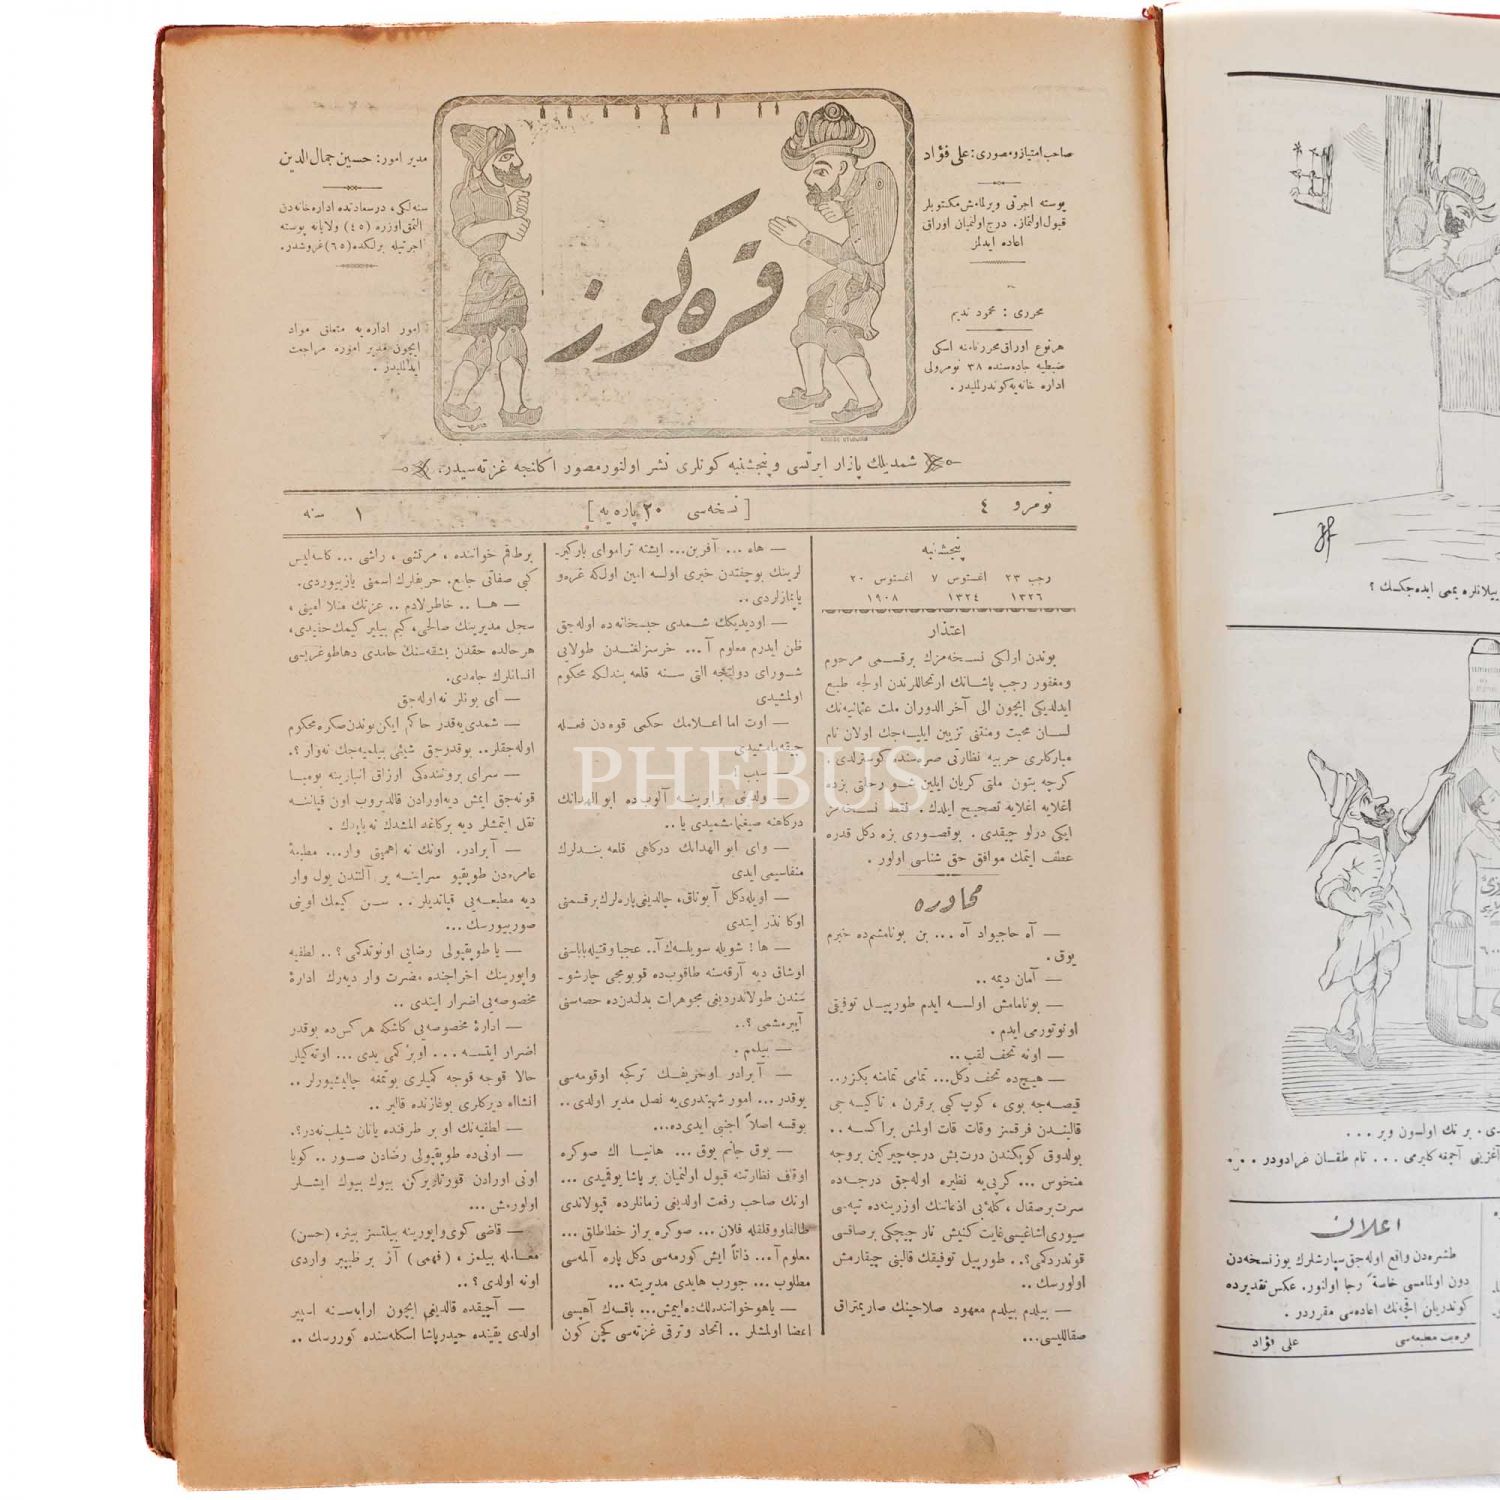 صاحب امتیاز و مصوری : علی فؤاد
پوسته اجرتی ویرلمامش مکتوبلر
قبول اولنماز. درج اولنمیان اوراق
اعاده ایدلمز
محرری : محمود ندیم
هر نوع اوراق محرر نامنه اسکی
ضبطیه جاده‌سنده ٣٨ نومرولی
اداره خانه‌یه کوندرلملیدر .
قره کوز
مدیر امور : حسین جمال الدین
سنه لکی ، در سعادتده اداره‌خانه‌دن
آلنمق اوزره (٤٥) ولایاته پوسته
اجرتیله برلکده (٦٥) غروشدر.
امور اداره‌یه متعلق مواد
ایچون مدیر اموره مراجعت
ایدلملیدر .
شمدیلك پازار ایرتسی و پنجشنبه کونلری نشر اولنور مصور اکلنجه غزته‌سیدر.
نومرو ٤
[ نسخه‌سی ٢٠ پاره‌یه ]
١ سنه
پنجشنبه
رجب ٢٣ اغستوس ٧ اغستوس ٢٠
١٣٢٦ ١٣٢٤ ١٩٠٨
اعتذار
بوندن اولکی نسخه‌مزك برقسمی مرحوم
ومغفور رجب پاشانك ارتحاللرندن اولجه طبع
ایدلدیکی ایچون الی آخر الدوران ملت عثمانیه‌نك
لسان محبت ومنتنی تزیین ایلیه‌جك اولان نام
مبارکلری حربیه نظارتی صره‌سنده کوسترلدی .
کرچه بتون ملتی کریان ایلین شو رحلتی بزده
اغلایه اغلایه تصحیح ایلدك . فقط نسخه‌مز
ایکی درلو چیقدی . بوقصوری بزه دکل قدره
عطف ایتمك موافق حق شناسی اولور .
محاوره
— آه حاجیواد آه ... بن بونامشم‌ده خبرم
یوق .
— آمان دیمه ..
— بونامامش اولسه ایدم طورپیل توفیقی
اونوتورمی ایدم .
— اونه تحف لقب ..
— هیچ‌ده تحف دکل... تمامی تمامنه بکزر..
قیصه‌جه بوی ، کوپ کبی برقرن ،
قالیندن فرقسز وقات قات اولمش براکسه ..
بولدوق کوپکندن درت‌بش درجه چیرکین بروجه
منحوس ... کرپی‌یه نظیره اوله‌جق درجه‌ده
سرت برصقال ، اوزرینده تپه‌سی
سیوری اشاغیسی غایت کنیش نار چیچکی برصاقسی
قوندردکمی؟.. طورپیل توفیقك قالبنی چیقارمش
اولورسك ..
— بیلدم بیلدم معهود صلاحینك صاریمتراق
صقاللیسی...
— هاه ... آفرین... ایشته تراموای بارکیر-
لرینك بوچفتدن خبری اولسه امین اول‌که غره‌و
یاپمازلردی ..
— اودیدیکك شمدی حبسخانه‌ده اوله‌جق
ظن ایدرم معلوم آ... خرسزلغندن طولایی
شورای دولتجه التی سنه قلعه بندلکه محکوم
اولمشیدی
— اوت اما اعلامك حکمی قوه‌دن فعله
چیقه‌مامشیدی
— سبب !
— ولدینی برابرینه آلوب‌ده ابو الهدانك
درکاهنه صیغنمامشمیدی یا ..
— وای ابو الهدانك درکاهی قلعه بندلرك
منفاسیمی ایدی
— اویله دکل آ بوناق، چالدیغی پاره‌لرك برقسمنی
اوکا نذر ایتدی
— ها ! شویله سویلسه‌ك آ.. عجبا وقتیله باباسنی
اوشاق دیه آرقه‌سنه طاقوب‌ده قویومجی چارشو-
سندن طولاندردیغی مجوهرات بدلندن‌ده حصه‌سنی
آیرمشمی ؟..
— بیلمم .
— آ برادر اوحریفك ترکجه اوقومه‌سی
یوقدر ... امور شهبندری‌یه نصل مدیر اولدی ..
یوقسه اصلاً اجنبی ایدی‌ده...
— یوق جانم یوق ... هانیا اك صوکره
اوقاف نظارتنه قبول اولنمیان بر پاشا یوقمیدی ...
اونك صاحب رفعت اولدیغی زمانلرده قپولاندی
... صوکره براز خط‌اطلق ...
معلوم آ... ذاتاً ایش کورمه‌سی دکل پاره آلمه‌سی
مطلوب ... جورب هایدی مدیریته ...
— یاهو خواننده‌لك‌ده ایمیش... باقسه‌ك آهپسی
اعضا اولمشلر .. اتحاد وترقی غزته‌سی کچن کون
برطقم خواننده ، مرتشی ، راشی ... کاسه‌لیس
کبی صفاتی جامع . حریفلرك اسمنی یازییوردی.
— ها .. خاطرلادم .. عزتك مثلا امینی ،
سجل مدیرینك صالحی، کیم بیلیر کیمك حفیدی،
هرحالده حقدن بشقه‌سنك حامدی دها طوغریسی
انسانلرك جامدی.
— ای بونلر نه اوله‌جق
— شمدی‌یه قدر حاکم ایکن بوندن صکره محکوم
اوله‌جقلر.. بوقدرجق شیئی بیلمیه‌جك نه‌وار ؟.
— سرای بروننده‌کی ارزاق انبارینه بومبا
قونه‌جق ایمش دیه اورادن قالدیروب اون قپاننه
نقل ایتمشلر دیه برکاغد المشدك نه یاپدك .
— آ برادر. اونك نه اهمیتی وار... مطبعهٔ
عامره‌دن طوپقپو سراینه یر آلتندن یول وار
دیه مطبعه‌یی قپاتدیلر .. سن کیمك اوینی
صوریورسك ...
— یا طوپقپولی رضایی اونوتدکمی ؟ .. لطفیه
واپورینك اخراجنده مضرت وار دیه‌رك ادارهٔ
مخصوصه‌یی اضرار ایتدی ..
— ادارهٔ مخصوصه‌یی کاشکه هرکس‌ده بوقدر
اضرار ایتسه ... اوبر کمی یدی ... اوته‌کیلر
حالا قوجه قوجه کمیلری یوتمغه چالیشیورلر ..
انشاالله دیرکلری بوغازنده قالیر ..
— لطفیه‌نك او بر طرفنده یاتان شیلب نه‌در؟.
— اونی‌ده طوپقپولی رضادن صور .. کویا
اونی اورادن قورتاریرکن بیوك بیوك ایشلر
اولورمش ...
— قاضی کوی واپورینه بیلتسز بینر، (حسن)
معامله بیلمز ، (فهمی) آز بر طبیب واردی
اونه اولدی ؟ ..
— آچیقده قالدیغی ایچون ارابه‌سنه اسپیر
اولدی یقینده حیدرپاشا اسکله‌سنده کوررسك ..
PHEBUS
ییلانلره یممی ایده‌جکسك ؟
دی. بر تك اولسون ویر ...
آغزینی آچمغه کلیرمی ... تام طقسان غرادودر ....
اعلان
طشره‌دن واقع اوله‌جق سپارشلرك یوز نسخه‌دن
دون اولمامسی خاصةً رجا اولنور. عکس تقدیرده
کوندریلن اقچه‌نك اعاده‌سی مقرردر .
علی فؤاد
قره‌بت مطبعه‌سی